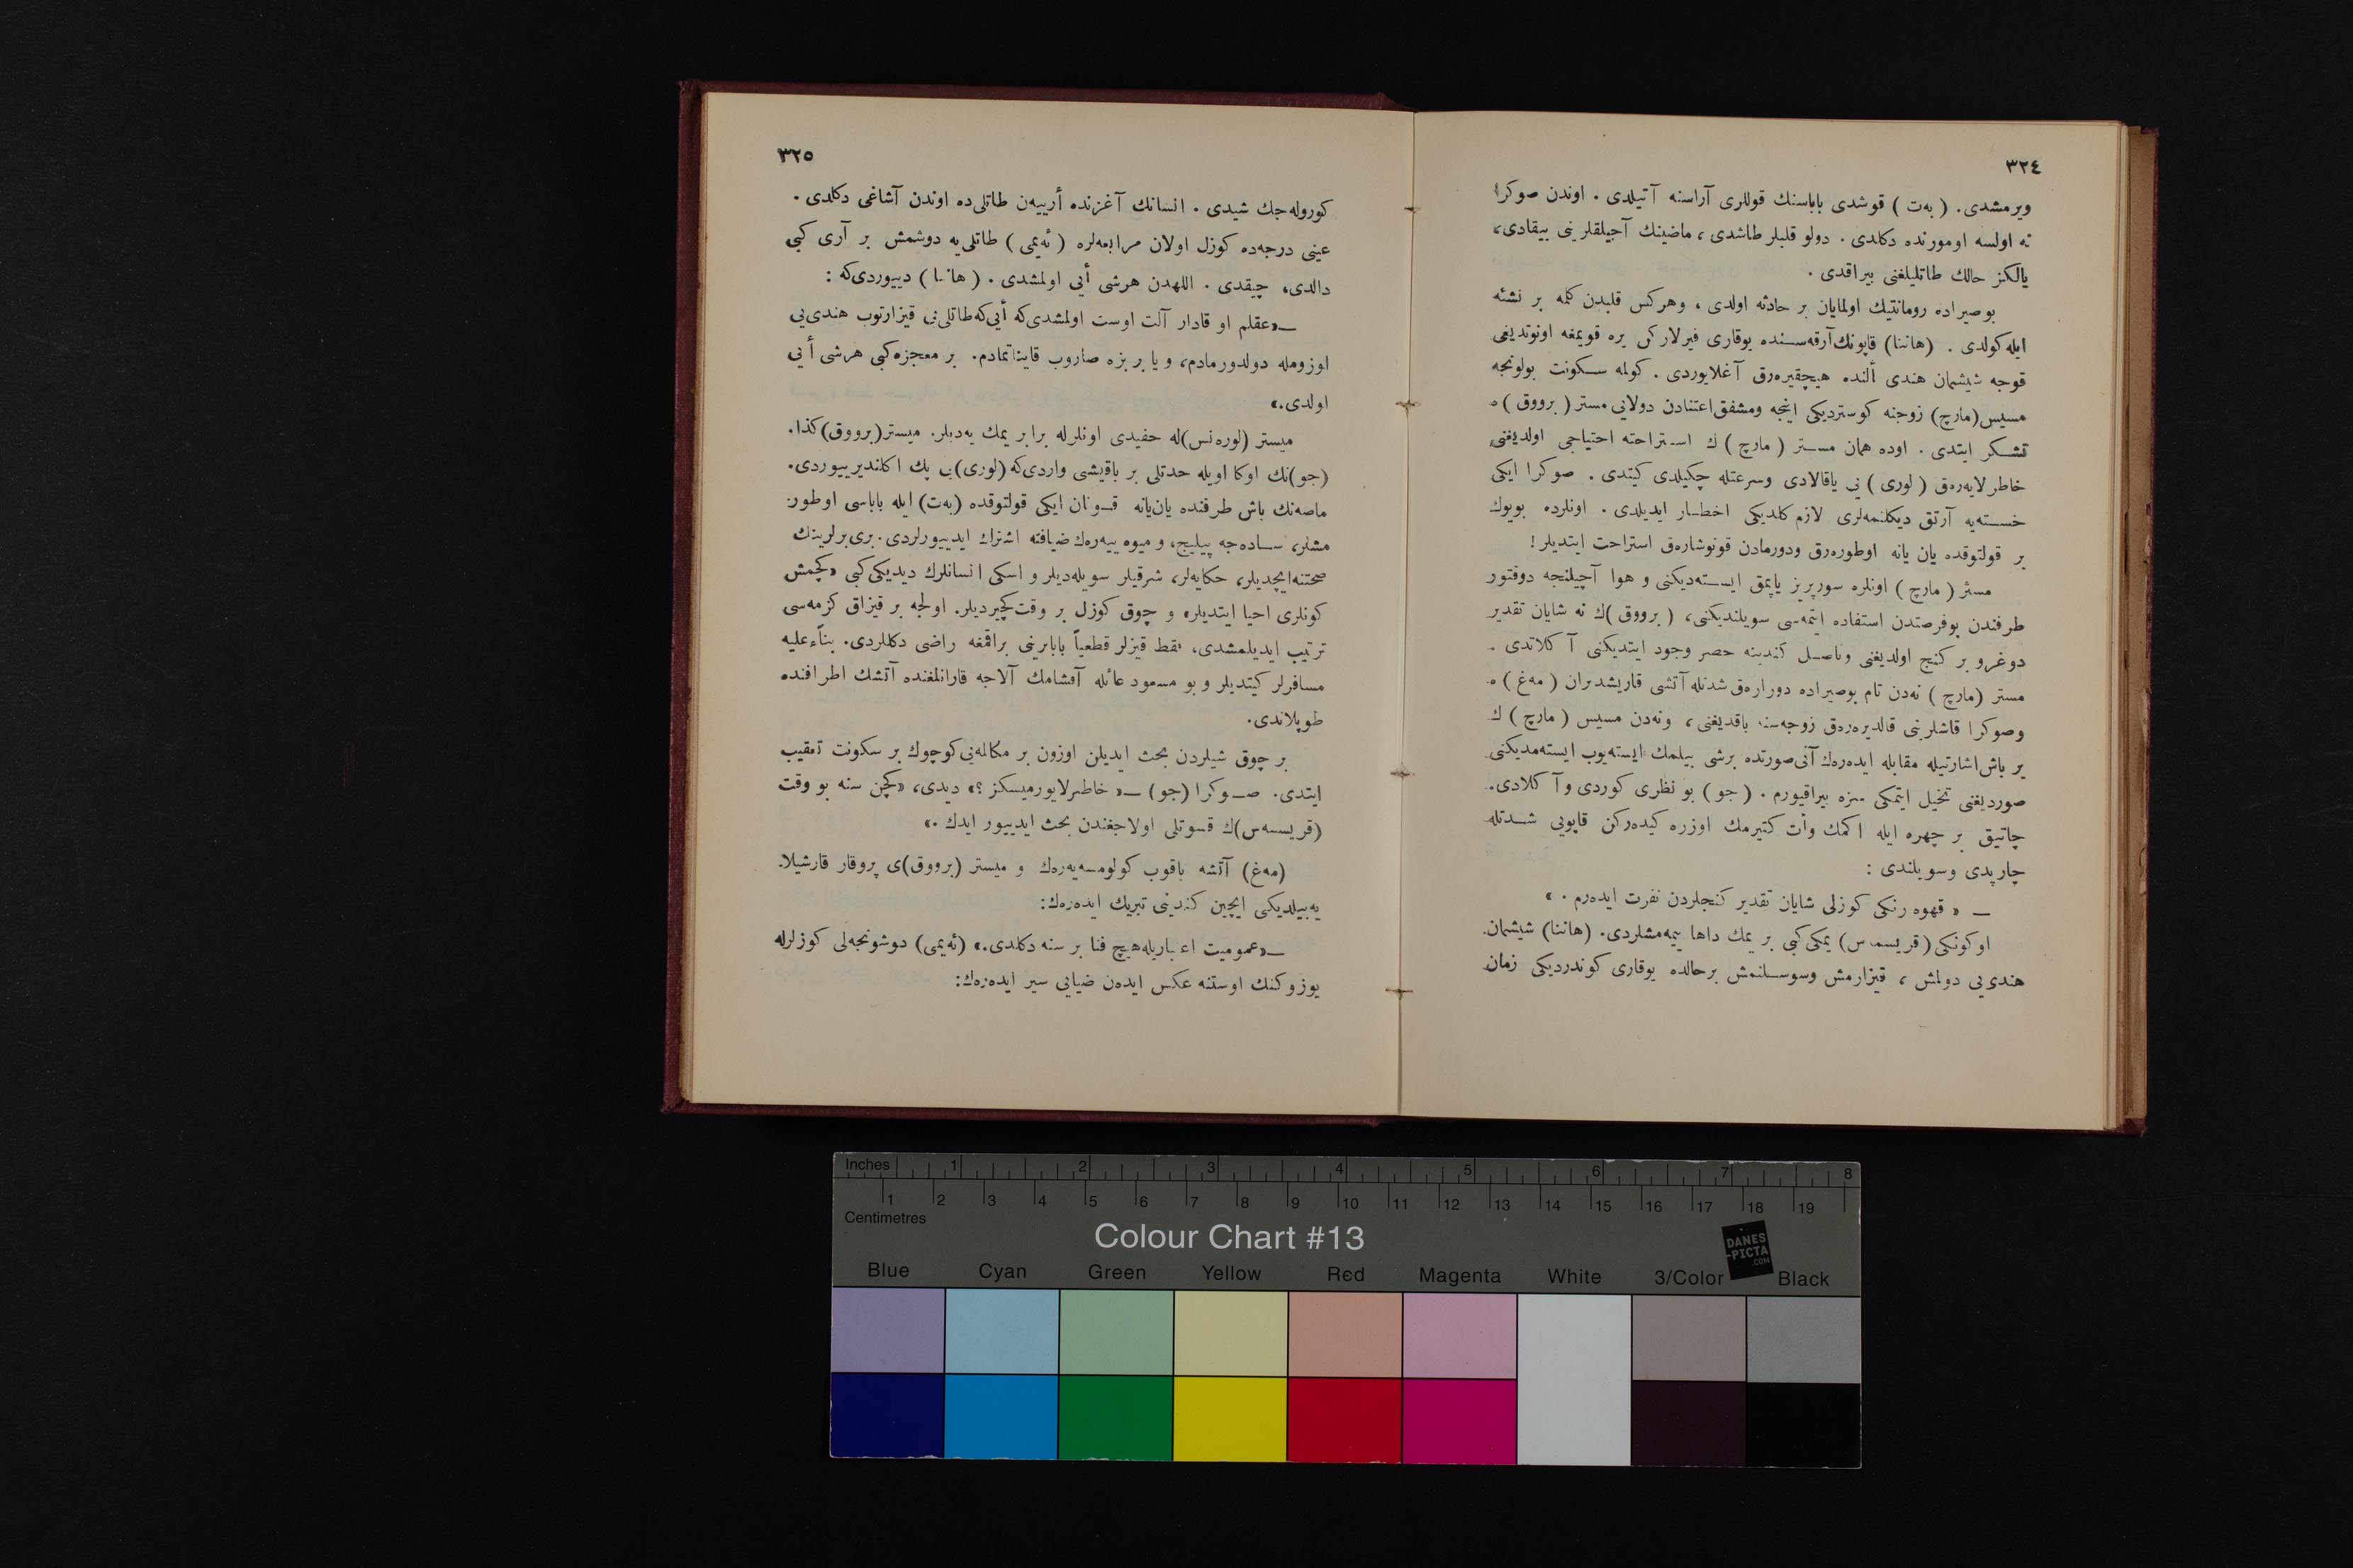 ٣٢٤
ويرمشدى. ( بەت ) قوشدى باباسنك قوللرى آراسنه آتيلدى . اوندن صوكرا
نه اولسه اومورنده دكلدى . دولو قلبلر طاشدى ، ماضينك آجيلقلرينى ييقادى،
يالكز حالك طاتليلغنى بيراقدى .
بوصيراده رومانتيك اولمايان بر حادثه اولدى ، وهركس قلبدن كلمه بر نشئه
ايله كولدى . (هاننا) قاپونك آرقه‌سـنده يوقارى فيرلاركن يره قويمغه اونوتديغى
قوجه شيشمان هندى ألنده هيچقيره‌رق آغلايوردى . كولمه سـكونت بولونجه
مسيس (مارچ) زوجنه كوسترديكى اينجه ومشفق اعتنادن دولايى مستر ( برووق ) ه
تشـكر ايتدى . اوده همان مسـتر ( مارچ ) ك اسـتراحته احتياجى اولديغنى
خاطرلايه‌رەق ( لورى ) نى ياقالادى وسرعتله چكيلدى كيتدى . صوكرا ايكى
خسـته‌يه آرتق ديكلنمه‌لرى لازم كلديكى اخطـار ايديلدى . اونلرده بويوك
بر قولتوقده يان يانه اوطوره‌رق ودورمادن قونوشارەق استراحت ايتديلر !
مستر ( مارچ ) اونلره سورپريز ياپمق ايسـته‌ديكنى و هوا آچيلنجه دوقتور
طرفندن بوفرصتدن استفاده ايتمه‌سى سويلنديكنى، ( برووق )ك نه شايان تقدير
دوغرو بر كنج اولديغنى وناصـل كندينه حصر وجود ايتديكنى آ كلاتدى .
مستر (مارچ ) نەدن تام بوصيراده دورارەق شدتله آتشى قاريشديران ( مەغ ) ه
وصوكرا قاشلرينى قالديره‌رەق زوجه‌سنه باقديغنى ، ونەدن مسيس ( مارچ ) ك
بر باش اشارتيله مقابله ايده‌رەك آنى صورتده برشى ييلمك ايسته‌يوب ايسته‌مديكنى
صورديغنى تخيل ايتمكى سزه بيراقيورم . ( جو ) بو نظرى كوردى و آ كلادى.
چاتيق بر چهره ايله اكمك وأت كتيرمك اوزره كيده‌ركن قاپويى شـدتله
چارپدى وسويلندى :
— « قهوه رنكى كوزلى شايان تقدير كنجلردن نفرت ايده‌رم . »
او كونكى ( قريسمس) يمكى كبى بر يمك داها ييمه‌مشلردى. (هاننا) شيشمان
هندى‌يى دولمش ، قيزارمش وسوسـلنمش برحالده يوقارى كوندرديكى زمان
٣٢٥
كوروله‌جك شيدى . انسانك آغزنده أريیەن طاتلى‌ده اوندن آشاغى دكلدى .
عينى درجه‌ده كوزل اولان مرابه‌لره ( ئەيمى ) طاتلى‌يه دوشمش بر آرى كبى
دالدى، چيقدى . اللهدن هرشى أيى اولمشدى . ( هاننا ) دييوردى‌كه :
—«عقلم او قادار آلت اوست اولمشدى‌كه أيى‌كه طاتلى‌نى قيزارتوب هندى‌يى
اوزومله دولدورمادم، و يا بر بزه صاروب قايناتمادم. بر معجزه كبى هرشى أيى
اولدى.»
ميستر (لوره‌نس)له حفيدى اونلرله برابر يمك يه‌ديلر. ميستر(برووق) كذا.
(جو)نك اوكا اويله حدتلى بر باقيشى واردى‌كه (لورى)يى پك اكلنديرييوردى.
ماصه‌نك باش طرفنده يان‌يانه قـونان ايكى قولتوقده (بەت) ايله باباسى اوطور
مشلر، سـاده‌جه پيليج، و ميوه ييه‌رەك ضيافته اشتراك ايدييورلردى. برى برلرينك
صحتنه ايچديلر، حكايه‌لر، شرقيلر سويله‌ديلر و اسكى انسانلرك ديديكى كبى «كچمش
كونلرى احيا ايتديلر» و چوق كوزل بر وقت كچيرديلر. اولجه بر قيزاق كزمه‌سى
ترتيب ايديلمشدى، فقط قيزلر قطعياً بابالرينى براقمغه راضى دكللردى. بناًءعليه
مسافرلر كيتديلر و بو مسعود عائله آقشامك آلاجه قارانلغنده آتشك اطرافنده
طوپلاندى.
بر چوق شيلردن بحث ايديلن اوزون بر مكالمه‌يى كوچوك بر سكونت تعقيب
ايتدى. صـوكرا (جو) —« خاطرلايورميسكز ؟» ديدى، «كچن سنه بو وقت
(قريسمەس)ك قسوتلى اولاجغندن بحث ايدييور ايدك .»
(مەغ) آتشه باقوب كولومسه‌يه‌رەك و ميستر (برووق)ى پروقار قارشيلا
يه‌بيلديكى ايچين كندينى تبريك ايده‌رەك:
—«عموميت اعتباريله هيچ فنا بر سنه دكلدى.» (ئەيمى) دوشونجه‌لى كوزلرله
يوزوكنك اوستنه عكس ايدەن ضيايى سير ايده‌رەك:
Inches 1 2 3 4 5 6 7 8
1 2 3 4 5 6 7 8 9 10 11 12 13 14 15 16 17 18 19
Centimetres
Colour Chart #13
DANES
-PICTA
.COM
Blue Cyan Green Yellow Red Magenta White 3/Color Black